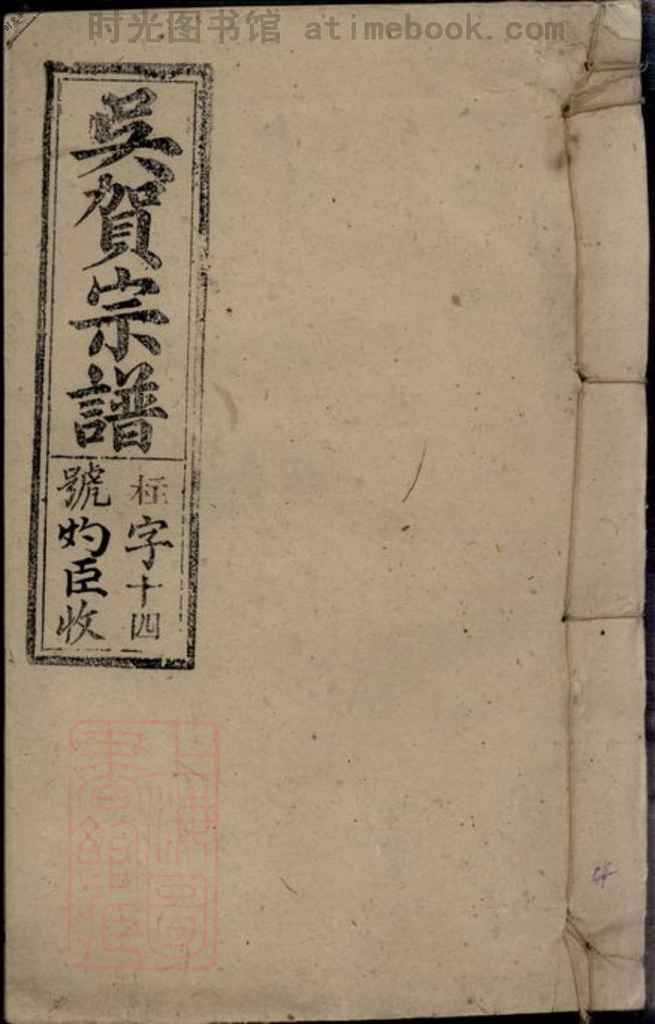 时光图书馆 atimebook.com
吳賀宗譜
字十四
號灼臣收